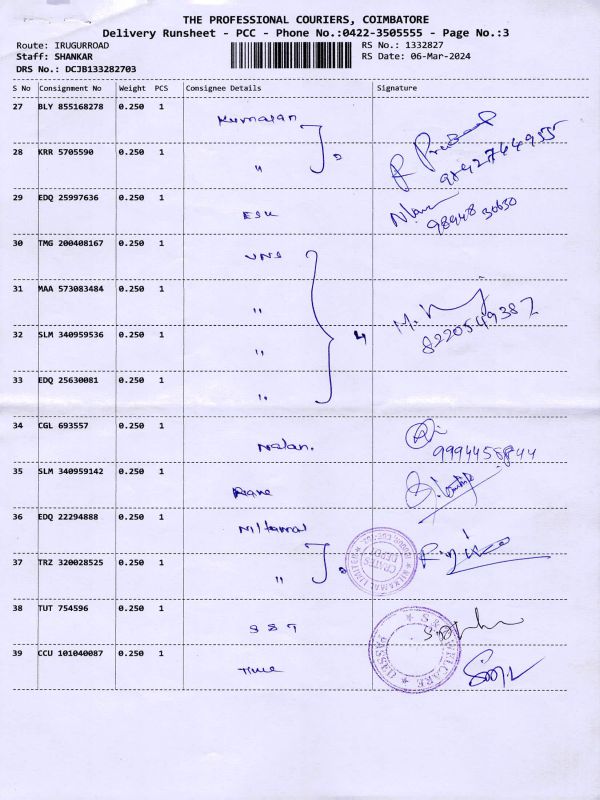 THE PROFESSIONAL COURIERS, COIMBATORE
Delivery Runsheet - PCC - Phone No.:0422-3505555 - Page No.:3
Route: IRUGURROAD RS No.: 1332827
Staff: SHANKAR RS Date: 06-Mar-2024
DRS No.: DCJB133282703
S No Consignment No Weight PCS Consignee Details Signature
27 BLY 855168278 0.250 1 Kumaran
28 KRR 5705590 0.250 1 " 2
9842744955
29 EDQ 25997636 0.250 1 ESK
9894830650
30 TMG 200408167 0.250 1 VNS
31 MAA 573083484 0.250 1 "
32 SLM 340959536 0.250 1 " 4
8220549382
33 EDQ 25630081 0.250 1 "
34 CGL 693557 0.250 1
9994458844
35 SLM 340959142 0.250 1
36 EDQ 22294888 0.250 1 Nilkamal
37 TRZ 320028525 0.250 1 " 2
NILKAMAL LIMITED
CRATES
DEPOT
38 TUT 754596 0.250 1
39 CCU 101040087 0.250 1 Time